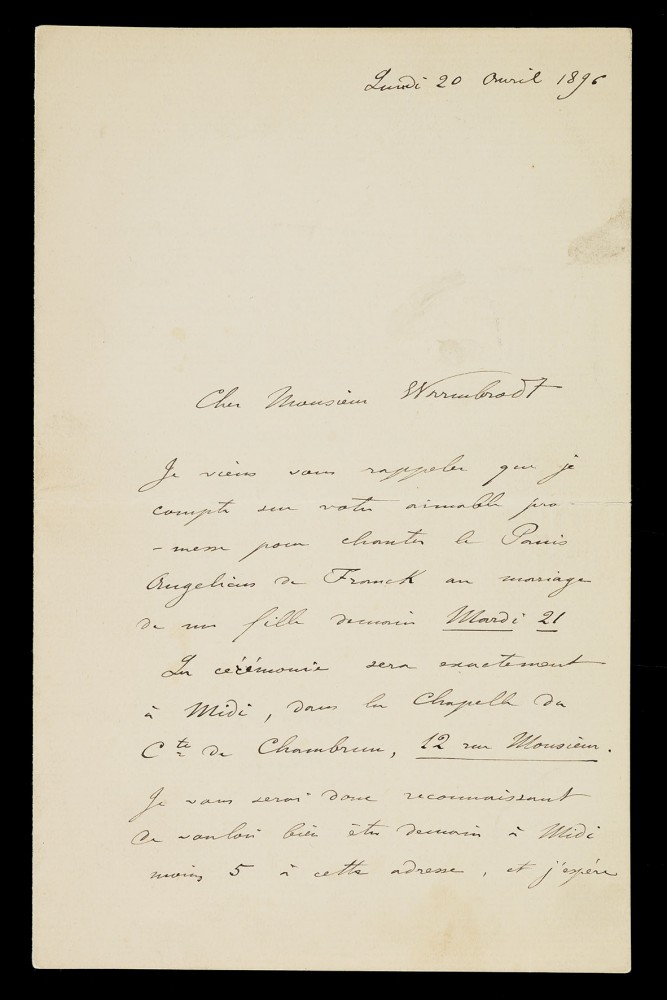 Lundi 20 Avril 1896
Cher Monsieur Warmbrodt
Je viens vous rappeler que je
compte sur votre aimable pro
-messe pour chanter le Panis
Angelicus de Franck au mariage
de ma fille demain Mardi 21
La cérémonie sera exactement
à Midi, dans la Chapelle du
Cte de Chambrun, 12 rue Monsieur.
Je vous serai donc reconnaissant
de vouloir bien être demain à Midi
moins 5 à cette adresse, et j'espère